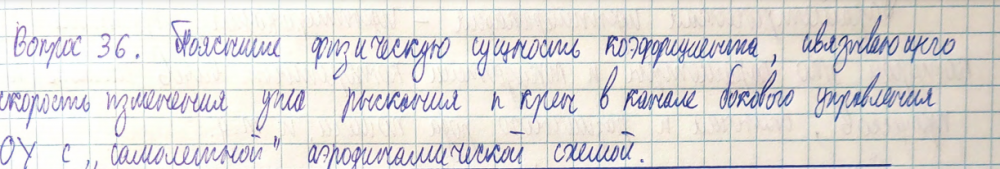 Вопрос 36. Поясните физическую сущность коэффициента, связывающего
скорость изменения угла рыскания и крен в канале бокового управления
ОУ с „самолетной" аэродинамической схемой.